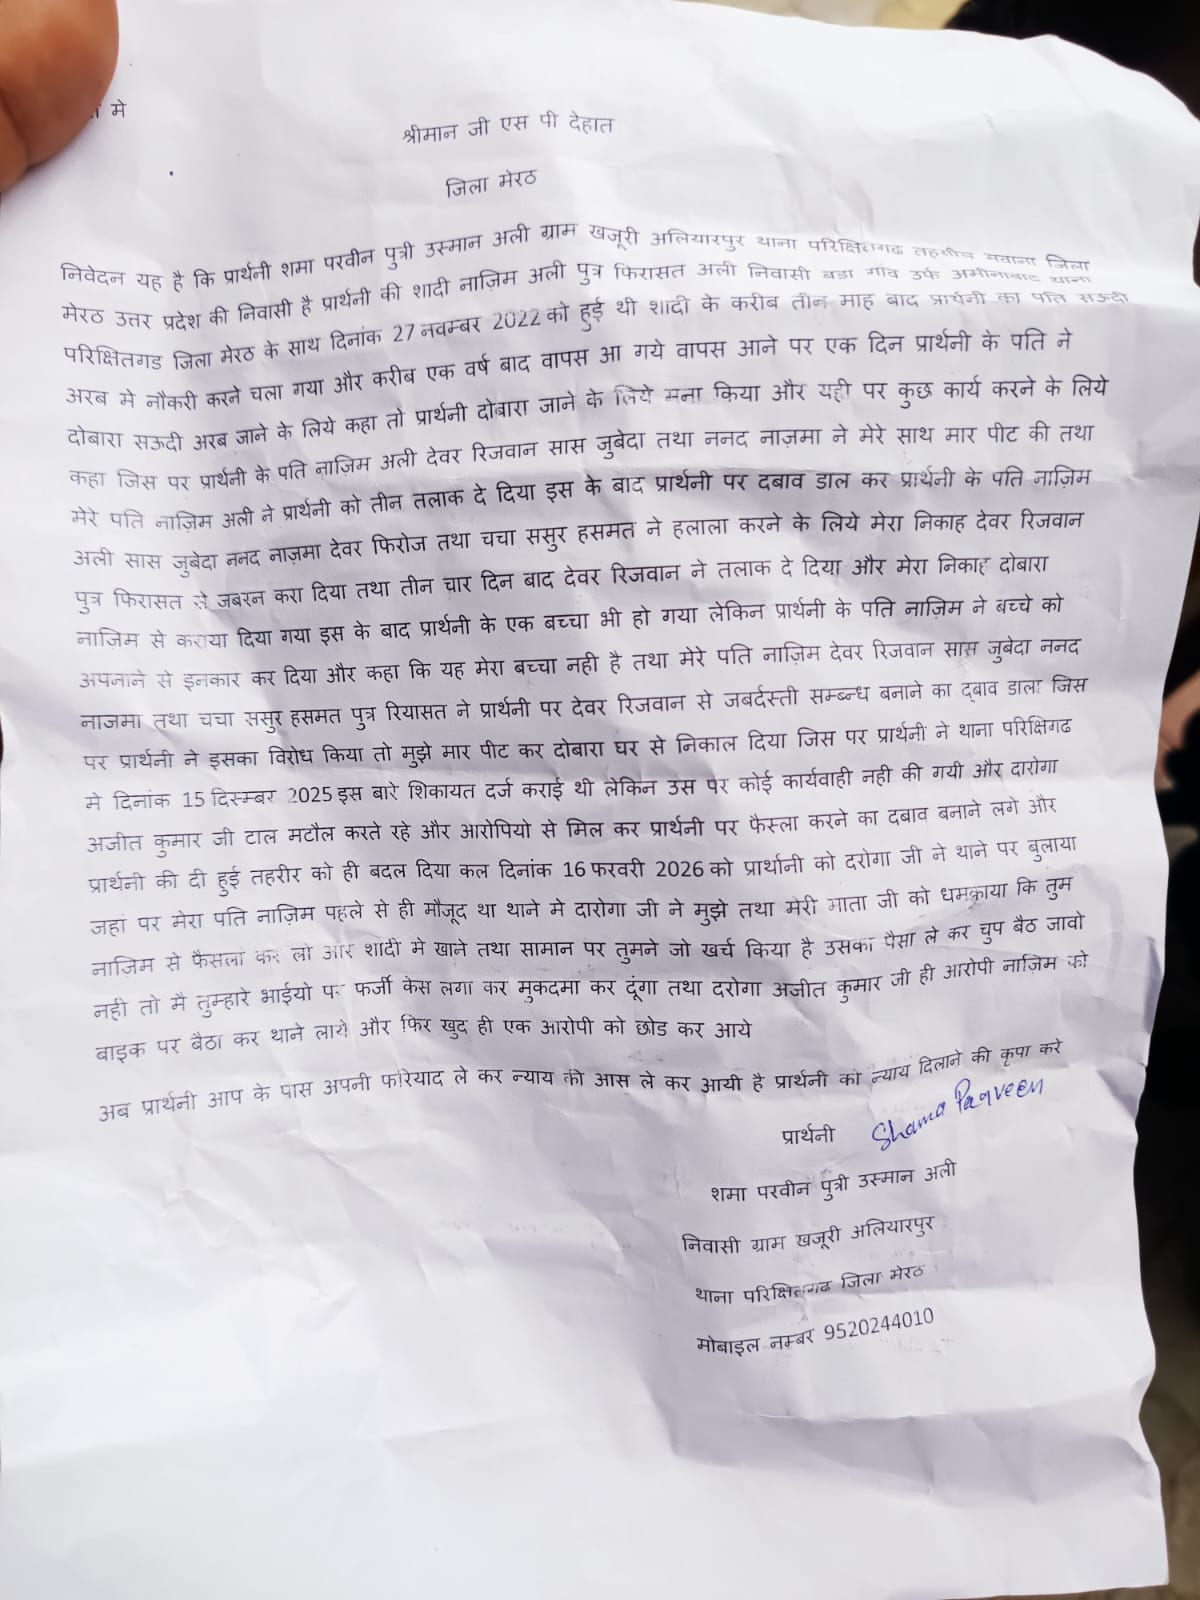 मे
श्रीमान जी एस पी देहात
जिला मेरठ
निवेदन यह है कि प्रार्थनी शमा परवीन पुत्री उस्मान अली ग्राम खजूरी अलियारपुर थाना परिक्षितगढ तहसील मवाना जिला
मेरठ उत्तर प्रदेश की निवासी है प्रार्थनी की शादी नाज़िम अली पुत्र फिरासत अली निवासी बडा गांव उर्फ अमीनाबाद थाना
परिक्षितगड जिला मेरठ के साथ दिनांक 27 नवम्बर 2022 को हुई थी शादी के करीब तीन माह बाद प्रार्थनी का पति सऊदी
अरब मे नौकरी करने चला गया और करीब एक वर्ष बाद वापस आ गये वापस आने पर एक दिन प्रार्थनी के पति ने
दोबारा सऊदी अरब जाने के लिये कहा तो प्रार्थनी दोबारा जाने के लिये मना किया और यही पर कुछ कार्य करने के लिये
कहा जिस पर प्रार्थनी के पति नाज़िम अली देवर रिजवान सास जुबेदा तथा ननद नाज़मा ने मेरे साथ मार पीट की तथा
मेरे पति नाज़िम अली ने प्रार्थनी को तीन तलाक दे दिया इस के बाद प्रार्थनी पर दबाव डाल कर प्रार्थनी के पति नाज़िम
अली सास जुबेदा ननद नाज़मा देवर फिरोज तथा चचा ससुर हसमत ने हलाला करने के लिये मेरा निकाह देवर रिजवान
पुत्र फिरासत से जबरन करा दिया तथा तीन चार दिन बाद देवर रिजवान ने तलाक दे दिया और मेरा निकाह दोबारा
नाज़िम से कराया दिया गया इस के बाद प्रार्थनी के एक बच्चा भी हो गया लेकिन प्रार्थनी के पति नाज़िम ने बच्चे को
अपनाने से इनकार कर दिया और कहा कि यह मेरा बच्चा नही है तथा मेरे पति नाज़िम देवर रिजवान सास जुबेदा ननद
नाजमा तथा चचा ससुर हसमत पुत्र रियासत ने प्रार्थनी पर देवर रिजवान से जबर्दस्ती सम्ब्न्ध बनाने का द्बाव डाला जिस
पर प्रार्थनी ने इसका विरोध किया तो मुझे मार पीट कर दोबारा घर से निकाल दिया जिस पर प्रार्थनी ने थाना परिक्षिगढ
मे दिनांक 15 दिस्म्बर 2025 इस बारे शिकायत दर्ज कराई थी लेकिन उस पर कोई कार्यवाही नही की गयी और दारोगा
अजीत कुमार जी टाल मटौल करते रहे और आरोपियो से मिल कर प्रार्थनी पर फैस्ला करने का दबाव बनाने लगे और
प्रार्थनी की दी हुई तहरीर को ही बदल दिया कल दिनांक 16 फरवरी 2026 को प्रार्थानी को दरोगा जी ने थाने पर बुलाया
जहां पर मेरा पति नाज़िम पहले से ही मौजूद था थाने मे दारोगा जी ने मुझे तथा मेरी माता जी को धमकाया कि तुम
नाज़िम से फैसला कर लो और शादी मे खाने तथा सामान पर तुमने जो खर्च किया है उसका पैसा ले कर चुप बैठ जावो
नही तो मै तुम्हारे भाईयो पर फर्जी केस लगा कर मुकदमा कर दूंगा तथा दरोगा अजीत कुमार जी ही आरोपी नाज़िम को
बाइक पर बैठा कर थाने लाये और फिर खुद ही एक आरोपी को छोड कर आये
अब प्रार्थनी आप के पास अपनी फरियाद ले कर न्याय की आस ले कर आयी है प्रार्थनी को न्याय दिलाने की कृपा करे
प्रार्थनी Shama Parveen
शमा परवीन पुत्री उस्मान अली
निवासी ग्राम खजूरी अलियारपुर
थाना परिक्षितगढ जिला मेरठ
मोबाइल नम्बर 9520244010